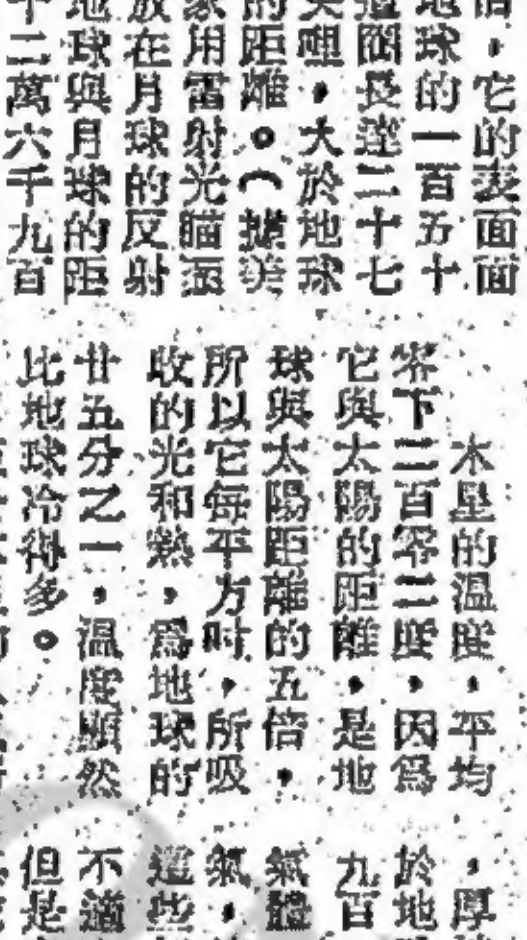 倍，它的表面面
地球的一百五十
道閣長達二十七
英哩，大於地球
的距離。（據美
家用雷射光瞄
放在月球的反射
地球與月球的距
十二萬六千九百
木星的溫度，平均
零下二百零二度，因爲
它與太陽的距離，是地
球與太陽距離的五倍，
所以它每平方吋，所吸
收的光和熱，爲地球的
廿五分之一，溫度顯然
比地球冷得多。
，厚
於地
九百
氣體
氣，
這些
不適
但是